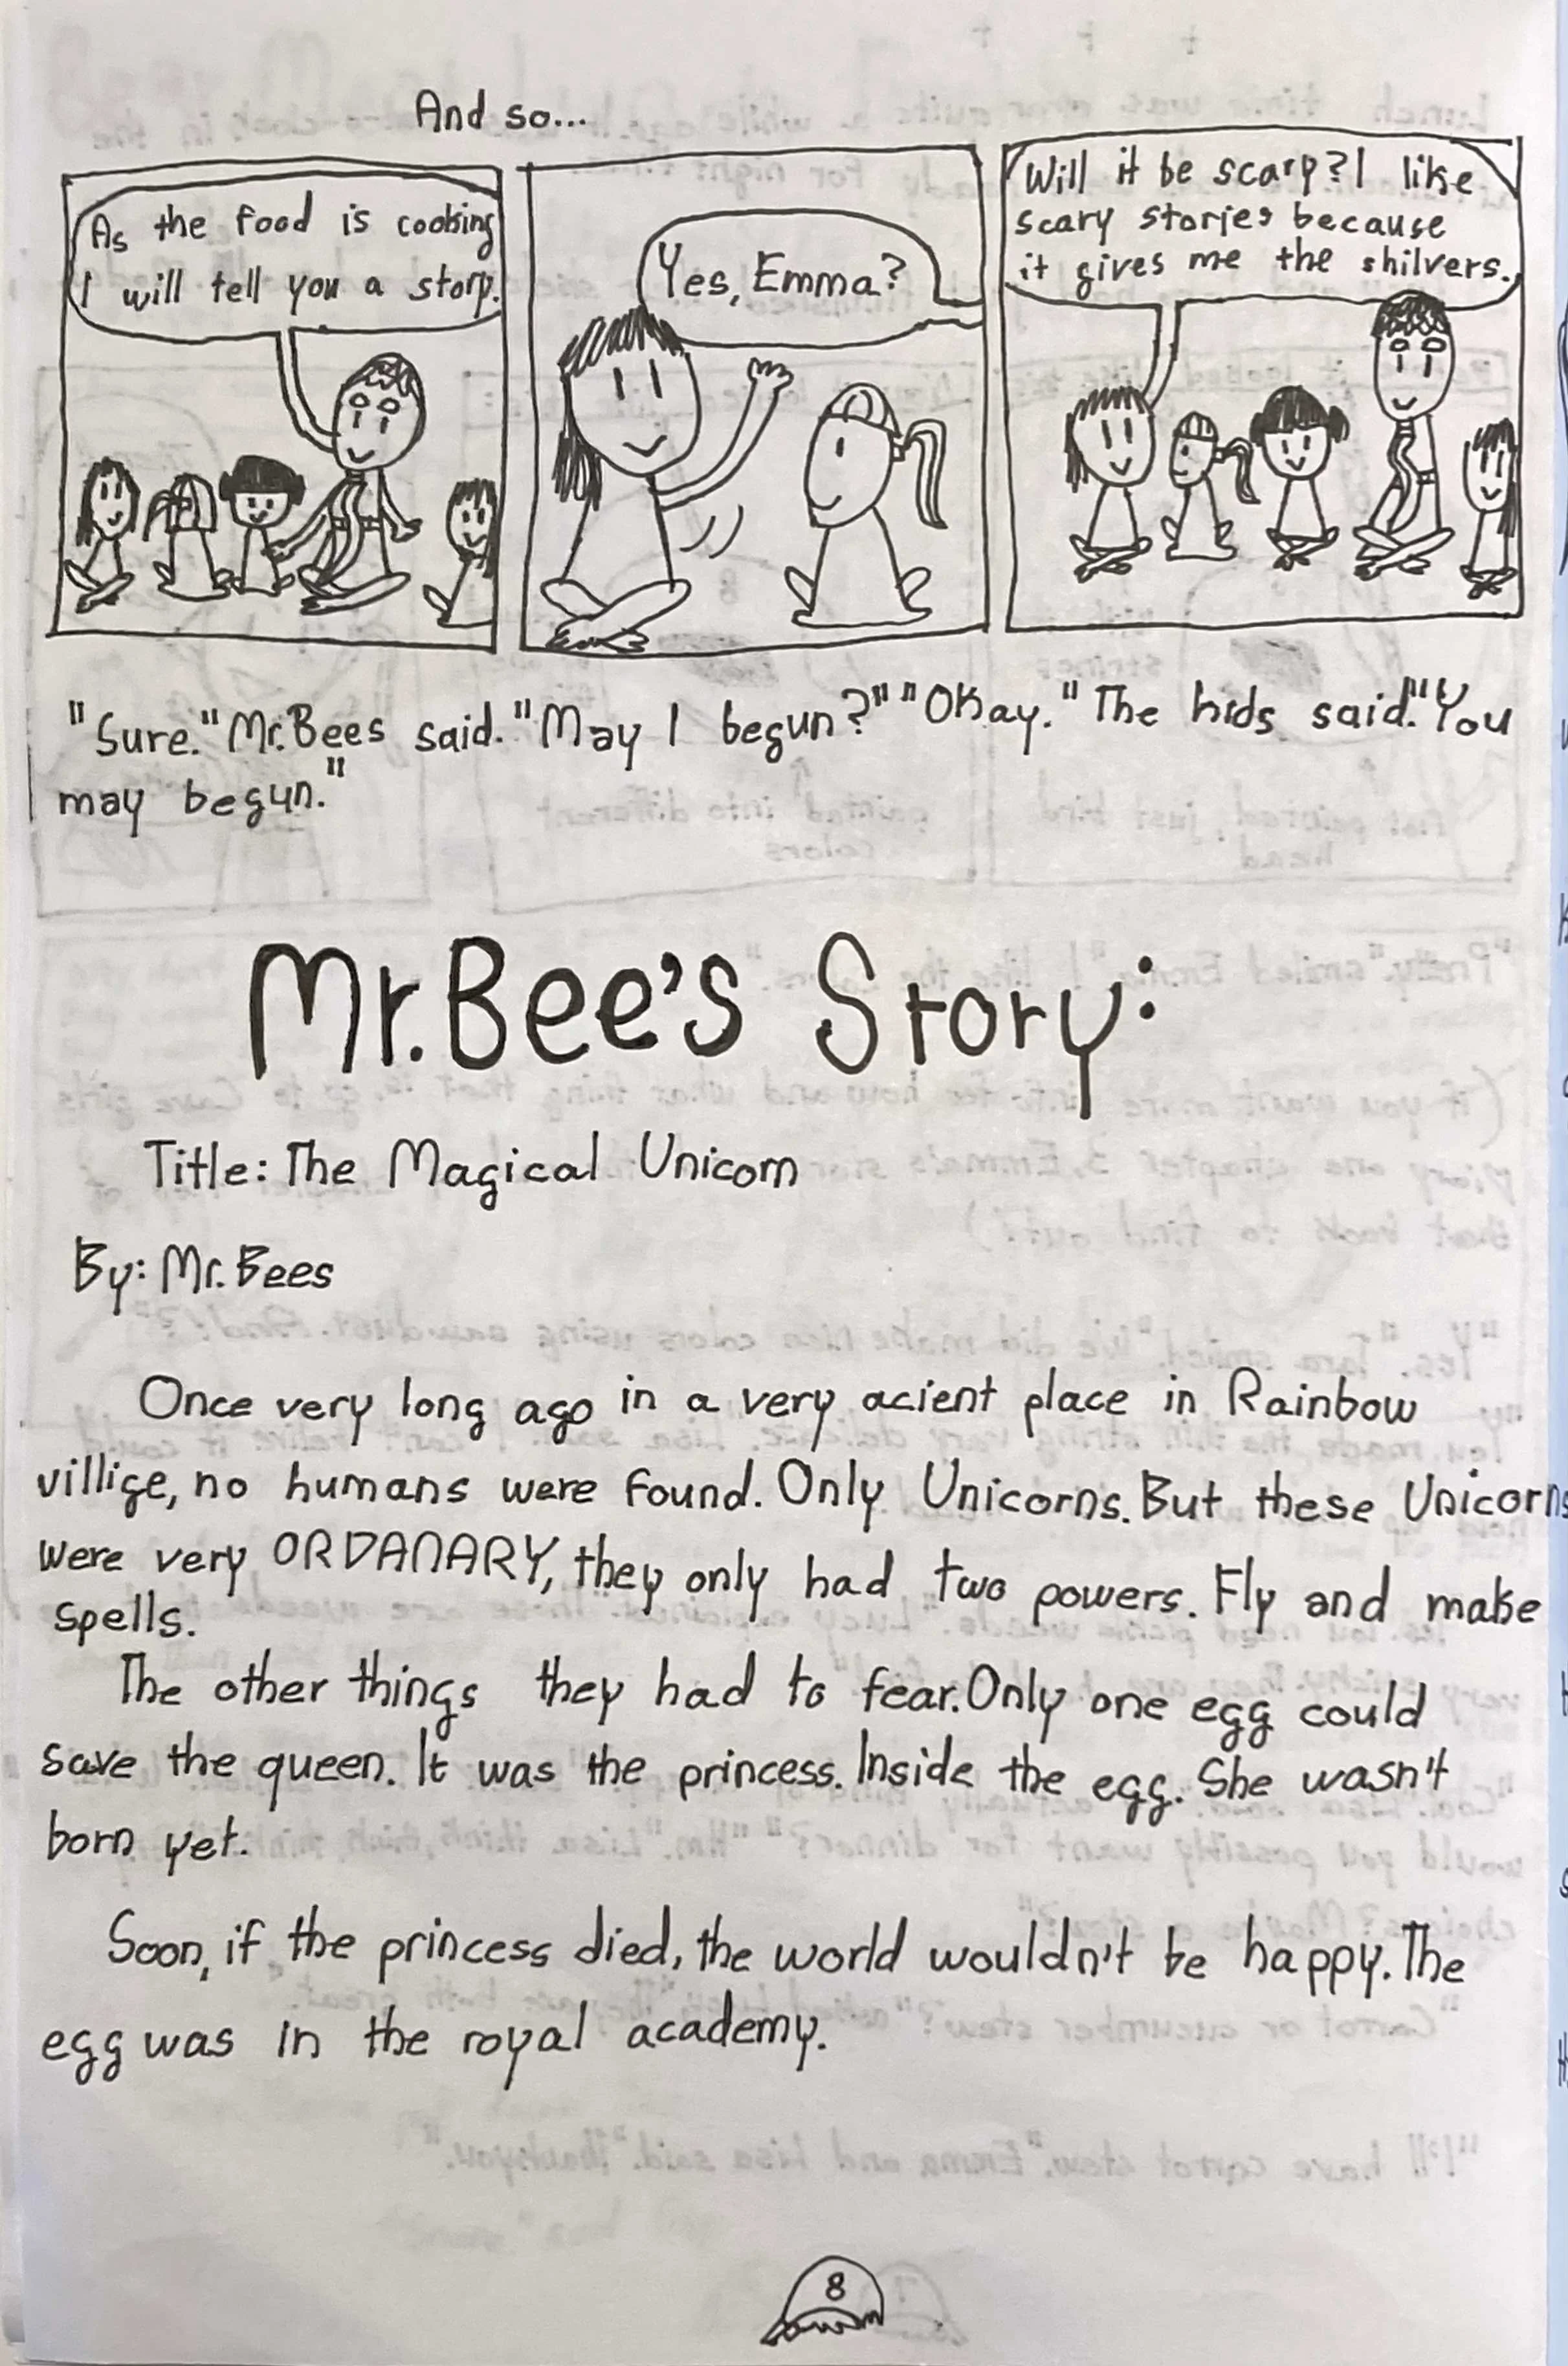 And so...
As the food is cooking
I will tell you a story.
Yes, Emma?
Will it be scary? I like
scary stories because
it gives me the shilvers.
"Sure." Mr. Bees said. "May I begun?" "Okay." The kids said. "You
may begun."
Mr. Bee's Story:
Title: The Magical Unicorn
By: Mr. Bees
Once very long ago in a very acient place in Rainbow
villige, no humans were found. Only Unicorns. But these Unicorns
were very ORDANARY, they only had two powers. Fly and make
spells.
The other things they had to fear. Only one egg could
save the queen. It was the princess. Inside the egg. She wasn't
born yet.
Soon, if the princess died, the world wouldn't be happy. The
egg was in the royal academy.
8